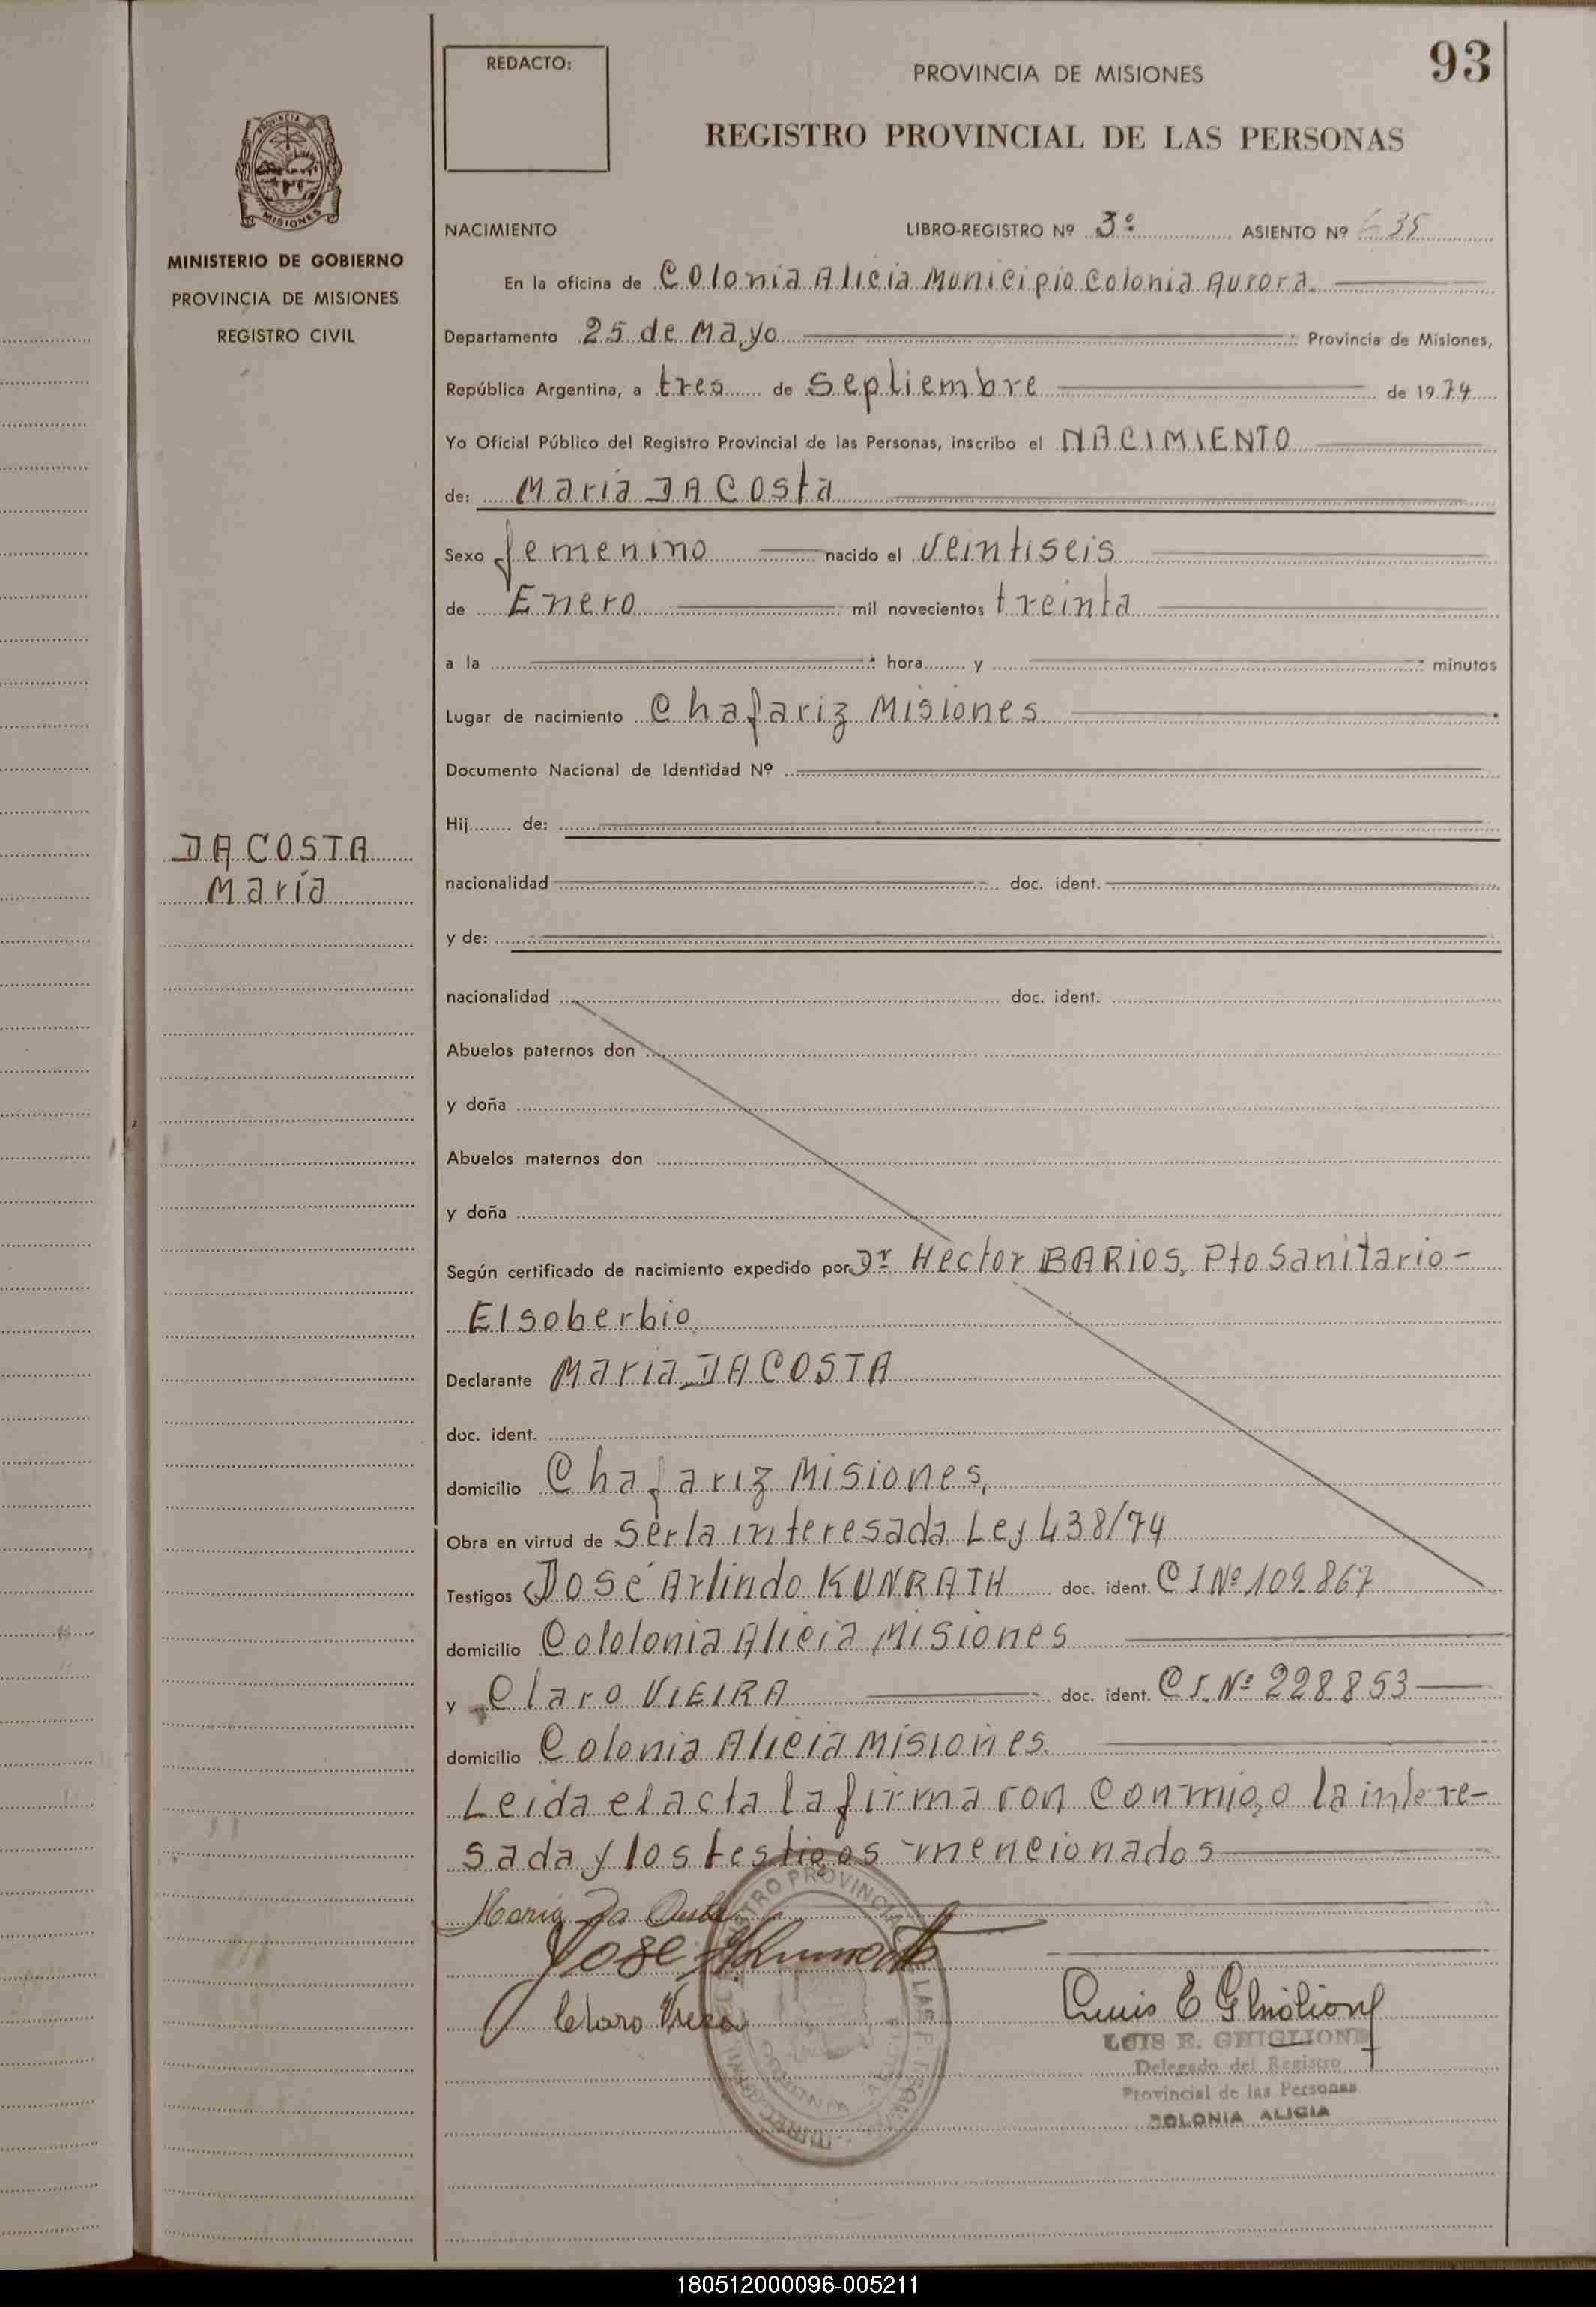 93
REDACTO:
PROVINCIA DE MISIONES
REGISTRO PROVINCIAL DE LAS PERSONAS
PROVINCIA DE
MISIONES
MINISTERIO DE GOBIERNO
PROVINCIA DE MISIONES
REGISTRO CIVIL
DA COSTA
María
NACIMIENTO LIBRO-REGISTRO Nº 3º ASIENTO Nº 635
En la oficina de Colonia Alicia Municipio Colonia Aurora.
Departamento 25 de Mayo Provincia de Misiones,
República Argentina, a tres de Septiembre de 1974
Yo Oficial Público del Registro Provincial de las Personas, inscribo el NACIMIENTO
de: Maria DA Costa
Sexo femenino nacido el veintiseis
de Enero mil novecientos treinta
a la hora y minutos
Lugar de nacimiento Chafariz Misiones
Documento Nacional de Identidad Nº
Hij de:
nacionalidad doc. ident.
y de:
nacionalidad doc. ident.
Abuelos paternos don
y doña
Abuelos maternos don
y doña
Según certificado de nacimiento expedido por Dr Hector BARIOS, Pto Sanitario-
El soberbio
Declarante Maria DA COSTA
doc. ident.
domicilio Chafariz Misiones,
Obra en virtud de ser la interesada Ley 438/74
Testigos José Arlindo KUNRATH doc. ident. C I Nº 109867
domicilio Cololonia Alicia Misiones
y Claro VIEIRA doc. ident. C I. Nº 228853
domicilio Colonia Alicia Misiones.
Leida el acta la firma ron Conmigo la intere-
sada y los testigos mencionados
Maria Da
Jose
Claro
Luis E Ghiglione
LUIS E. GHIGLIONE
Delegado del Registro
Provincial de las Personas
COLONIA ALICIA
180512000096-005211